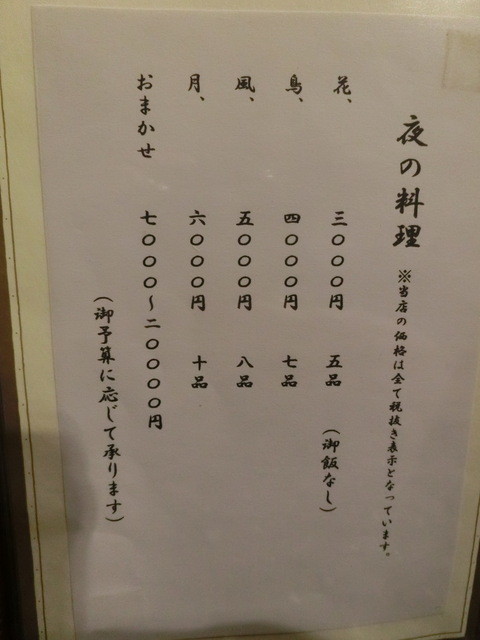 夜の料理 ※当店の価格は全て税抜き表示となっています。
花、 三〇〇〇円 五品 (御飯なし)
鳥、 四〇〇〇円 七品
風、 五〇〇〇円 八品
月、 六〇〇〇円 十品
おまかせ 七〇〇〇～二〇〇〇〇円
(御予算に応じて承ります)